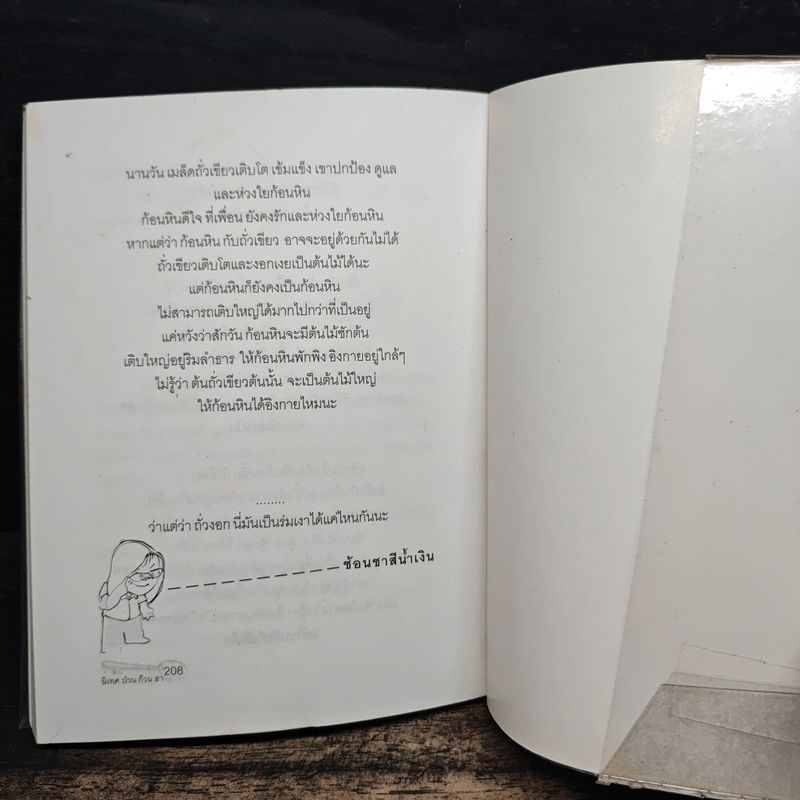 นานวัน เมล็ดถั่วเขียวเติบโต เข้มแข็ง เขาปกป้อง ดูแล
และห่วงใยก้อนหิน
ก้อนหินดีใจ ที่เพื่อน ยังคงรักและห่วงใยก้อนหิน
หากแต่ว่า ก้อนหิน กับถั่วเขียว อาจจะอยู่ด้วยกันไม่ได้
ถั่วเขียวเติบโตและงอกเงยเป็นต้นไม้ได้นะ
แต่ก้อนหินก็ยังคงเป็นก้อนหิน
ไม่สามารถเติบใหญ่ได้มากไปกว่าที่เป็นอยู่
แค่หวังว่าสักวัน ก้อนหินจะมีต้นไม้ซักต้น
เติบใหญ่อยู่ริมลำธาร ให้ก้อนหินพักพิง อิงกายอยู่ใกล้ๆ
ไม่รู้ว่า ต้นถั่วเขียวต้นนั้น จะเป็นต้นไม้ใหญ่
ให้ก้อนหินได้อิงกายไหมนะ
........
ว่าแต่ว่า ถั่วงอก นี่มันเป็นร่มเงาได้แค่ไหนกันนะ
ช้อนชาสีน้ำเงิน
208
นิเทศ ป่วน ก๊วน ฮา